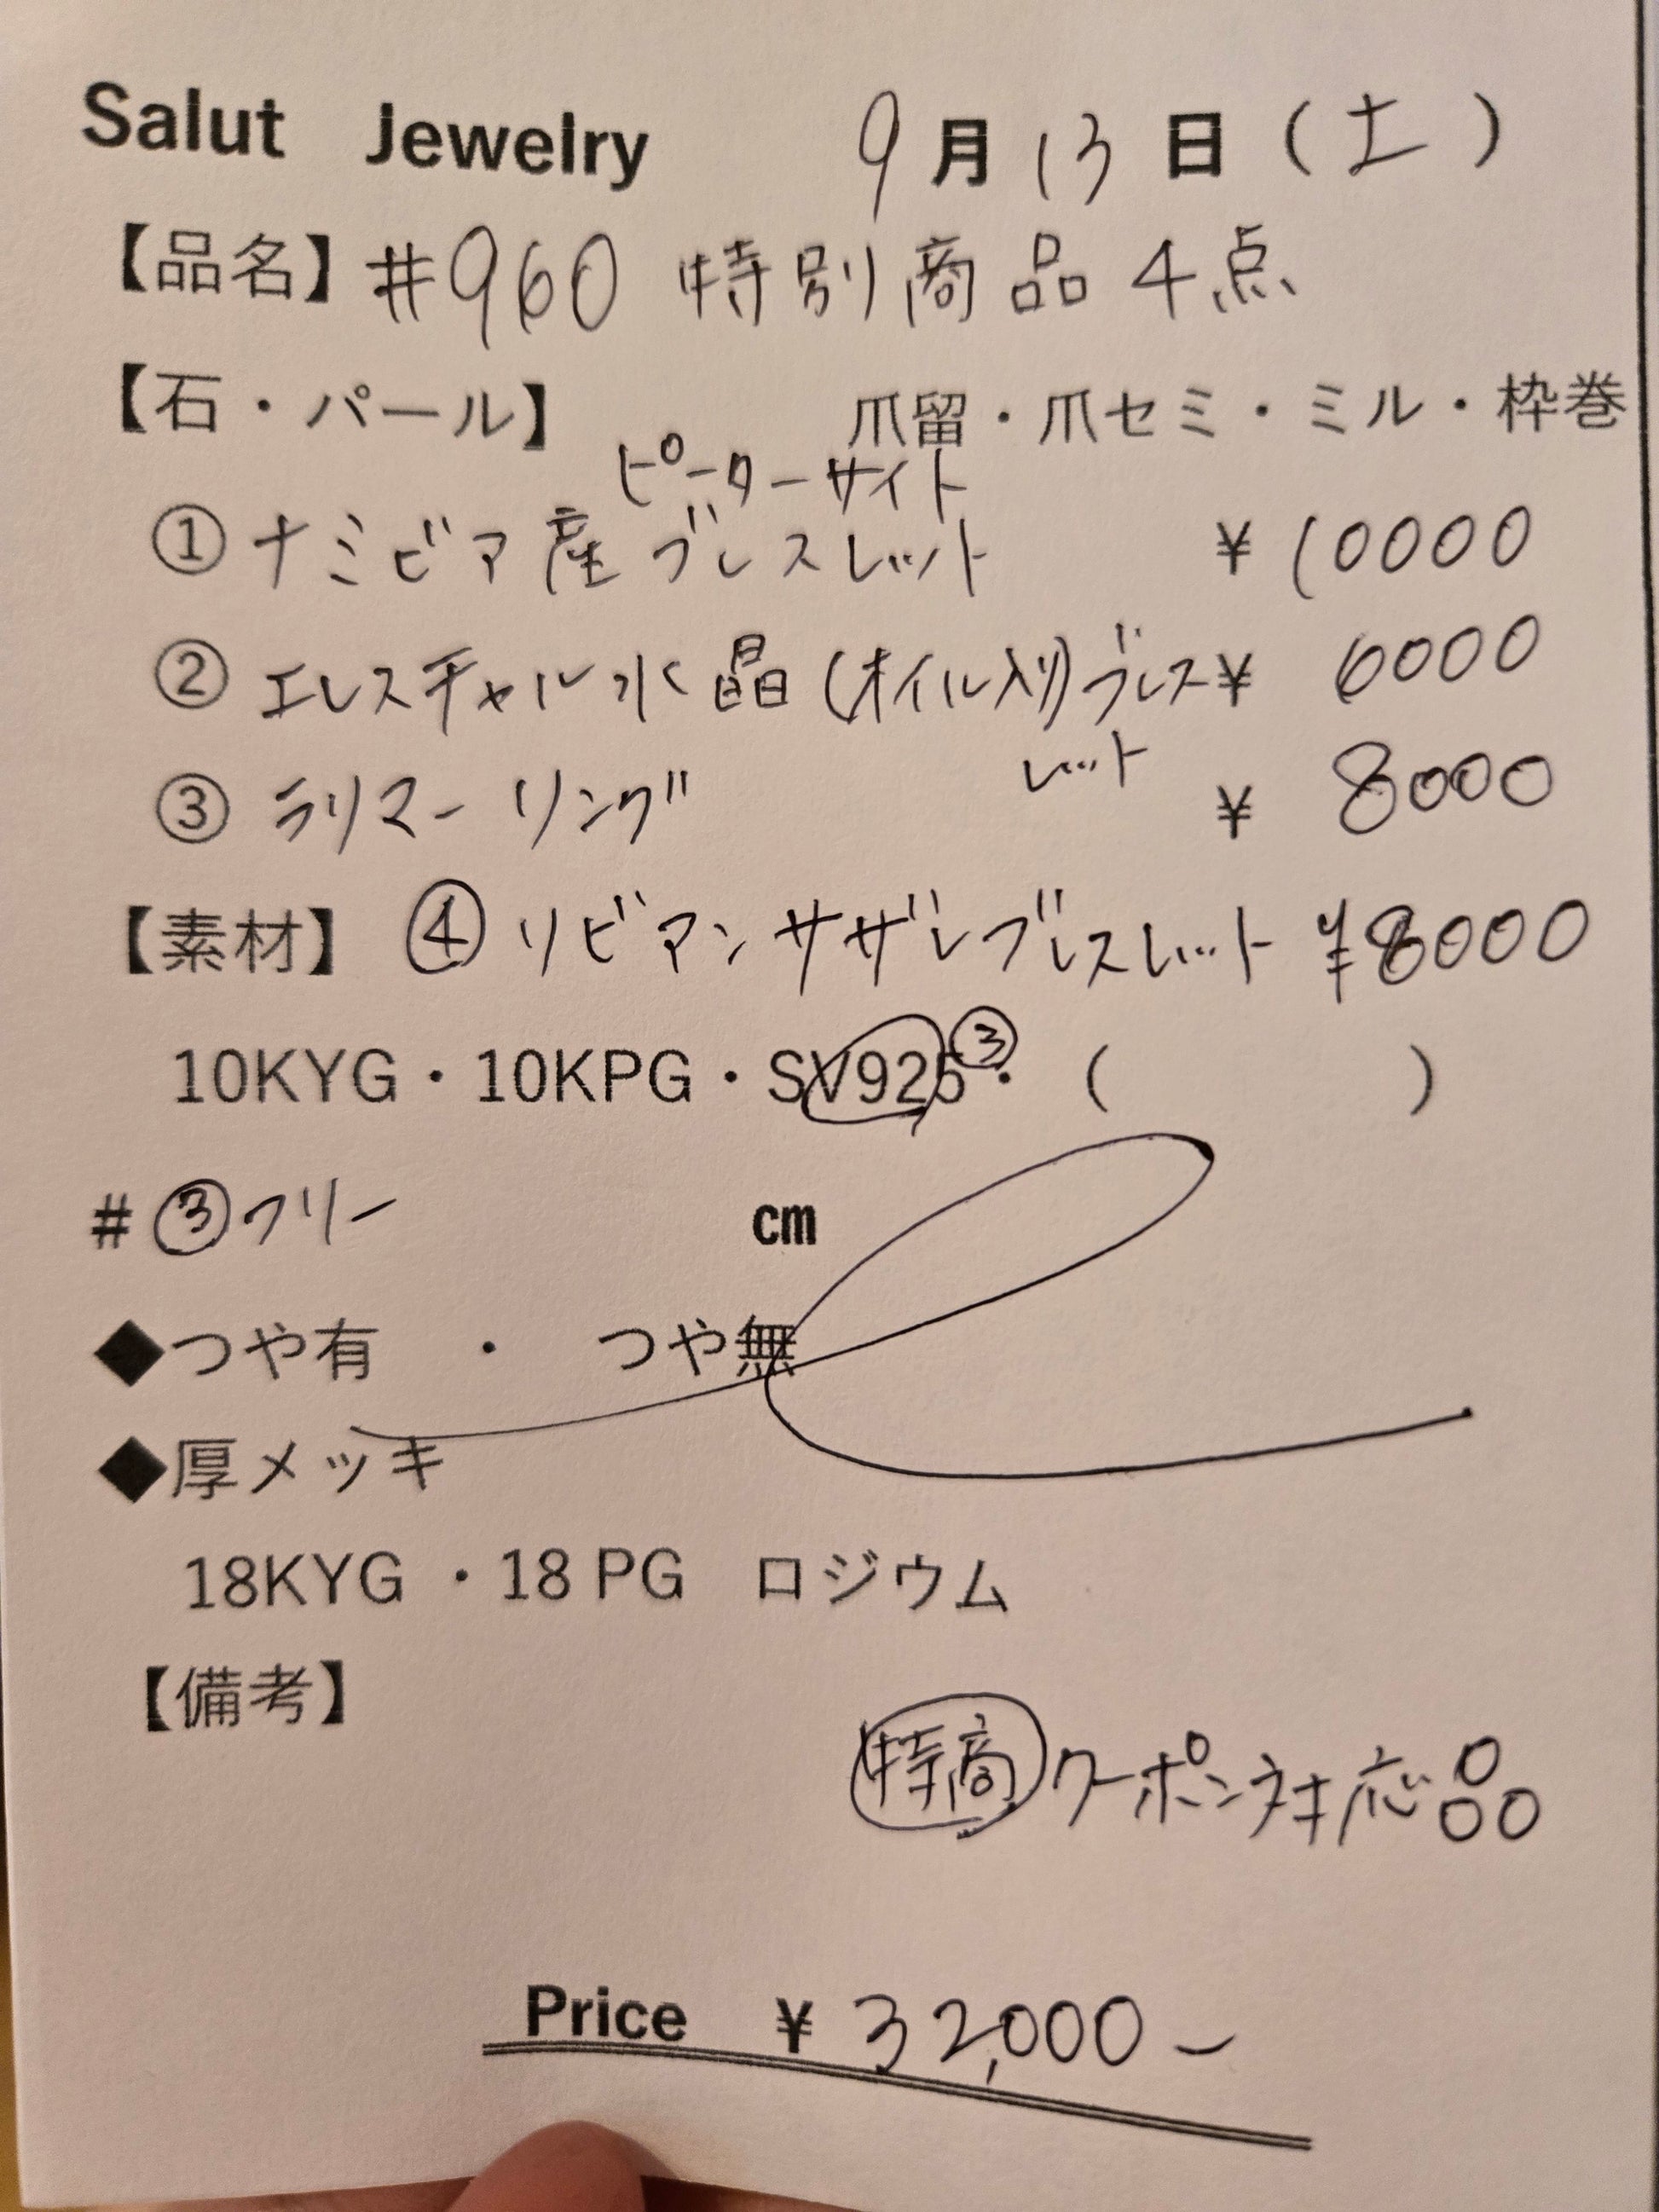 Salut Jewelry 9月13日(土)
【品名】#960 特別商品 4点
【石・パール】 爪留・爪セミ・ミル・枠巻
ピーターサイト
①ナミビア産ブレスレット ¥10000
②エレスチャル水晶(オイル入り)ブレス¥ 6000
レット
③ラリマーリング ¥ 8000
【素材】④リビアンサザレブレスレット ¥8000
10KYG・10KPG・SV925③・( )
#③フリー cm
◆つや有 ・ つや無
◆厚メッキ
18KYG ・18 PG ロジウム
【備考】
特商クーポン対応品
Price ¥ 32,000-